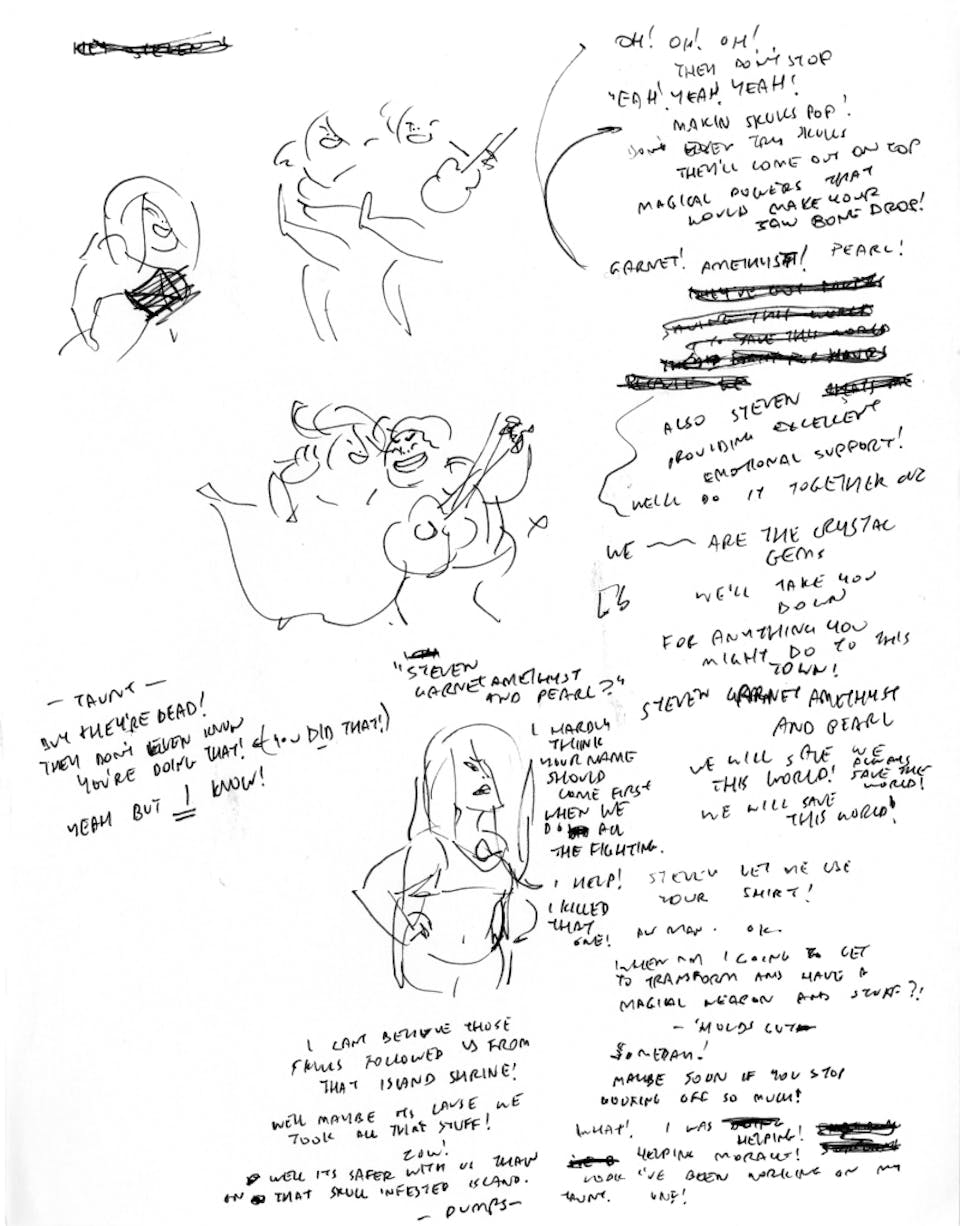 OH! OH! OH!
THEY DON'T STOP
"EAH! YEAH! YEAH!
MAKIN SKULLS POP!
DON'T EVEN TRY SKULLS
THEY'LL COME OUT ON TOP
MAGICAL POWERS THAT
WOULD MAKE YOUR
JAW BONE DROP!
GARNET! AMETHYST! PEARL!
SAVING THIS WORLD
TO SAVE THIS WORLD
ALSO STEVEN
PROVIDING EXCELLENT
EMOTIONAL SUPPORT!
WE'LL DO IT TOGETHER
WE ARE THE CRYSTAL
GEMS
WE'LL TAKE YOU
DOWN
FOR ANYTHING YOU
MIGHT DO TO THIS
TOWN!
STEVEN GARNET AMETHYST
AND PEARL
WE WILL SAVE
THIS WORLD!
WE ALWAYS
SAVE THE
WORLD!
WE WILL SAVE
THIS WORLD!
"STEVEN
GARNET AMETHYST
AND PEARL?"
I HARDLY
THINK
YOUR NAME
SHOULD
COME FIRST
WHEN WE
DO ALL
THE FIGHTING.
I HELP! STEVEN LET ME USE
YOUR SHIRT!
I KILLED
THAT
ONE!
AW MAN. OK.
WHEN AM I GOING TO GET
TO TRANSFORM AND HAVE A
MAGICAL WEAPON AND STUFF?!
SOMEDAY!
MAYBE SOON IF YOU STOP
GOOFING OFF SO MUCH!
WHAT! I WAS
HELPING!
HELPING MORALLY!
LOOK I'VE BEEN WORKING ON MY
TAUNT. ONE!
- TAUNT -
BUT THEY'RE DEAD!
THEY DON'T EVEN KNOW
YOU'RE DOING THAT! (YOU DID THAT!)
YEAH BUT I KNOW!
I CANT BELIEVE THOSE
SKULLS FOLLOWED US FROM
THAT ISLAND SHRINE!
WELL MAYBE ITS CAUSE WE
TOOK ALL THAT STUFF!
WELL ITS SAFER WITH US THAN
ON THAT SKULL INFESTED ISLAND.
- DUMPS -